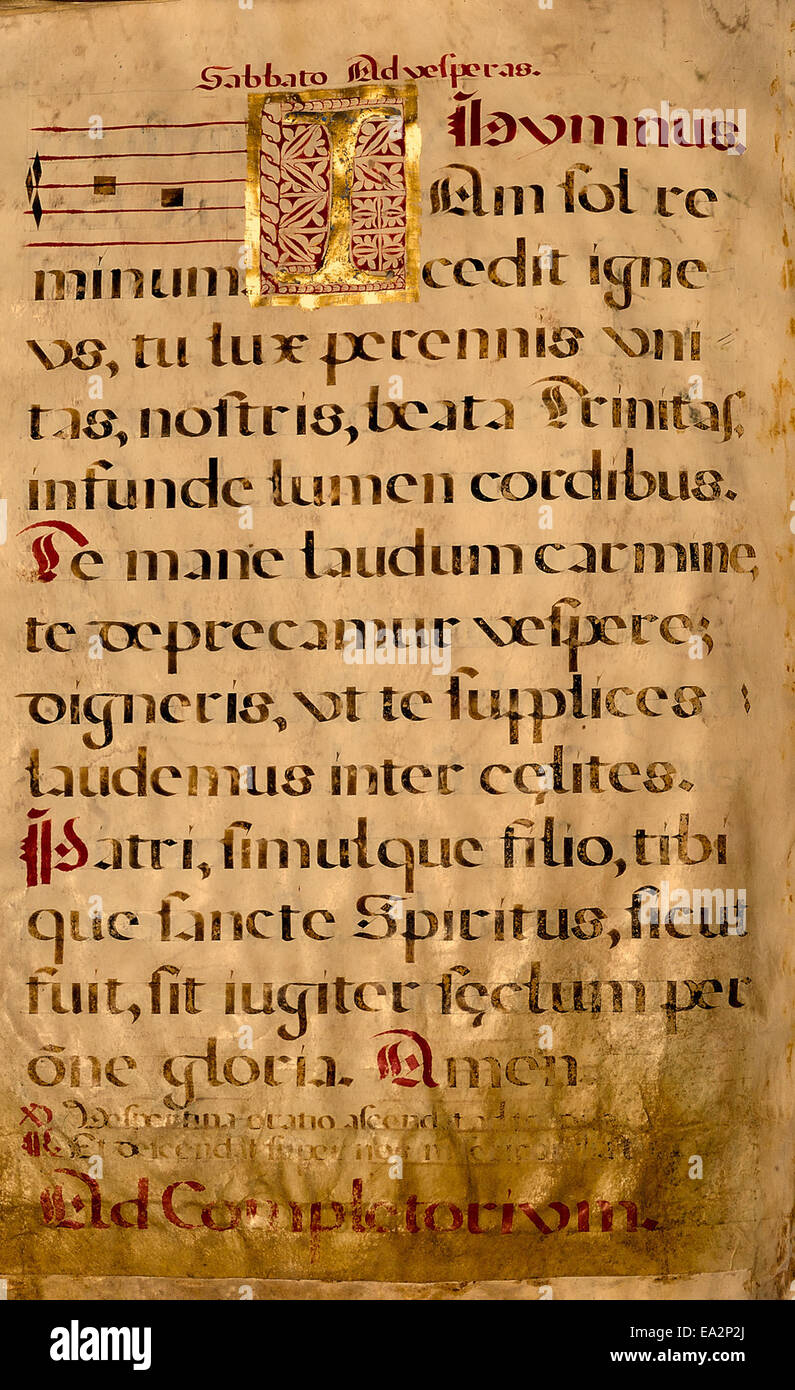 Sabbato Ad veſperas.
Hymnus,
I Am ſol re
minum. cedit igne
vs, tu lux perennis vni
tas, noſtris, beata Trinitaſ,
infunde lumen cordibus.
Te mane laudum carmine,
te deprecamur veſpere;
digneris, vt te ſupplices
laudemus inter cęlites.
Patri, ſimulque filio, tibi
que ſancte Spiritus, ſicut
fuit, ſit iugiter ſęclum per
õne gloria. Amen.
℣ Veſpertina oratio aſcendat ad te
℟ Et deſcendat ſuper nos
Ad Completorium.
alamy
Image ID: EA2P2J
www.alamy.com